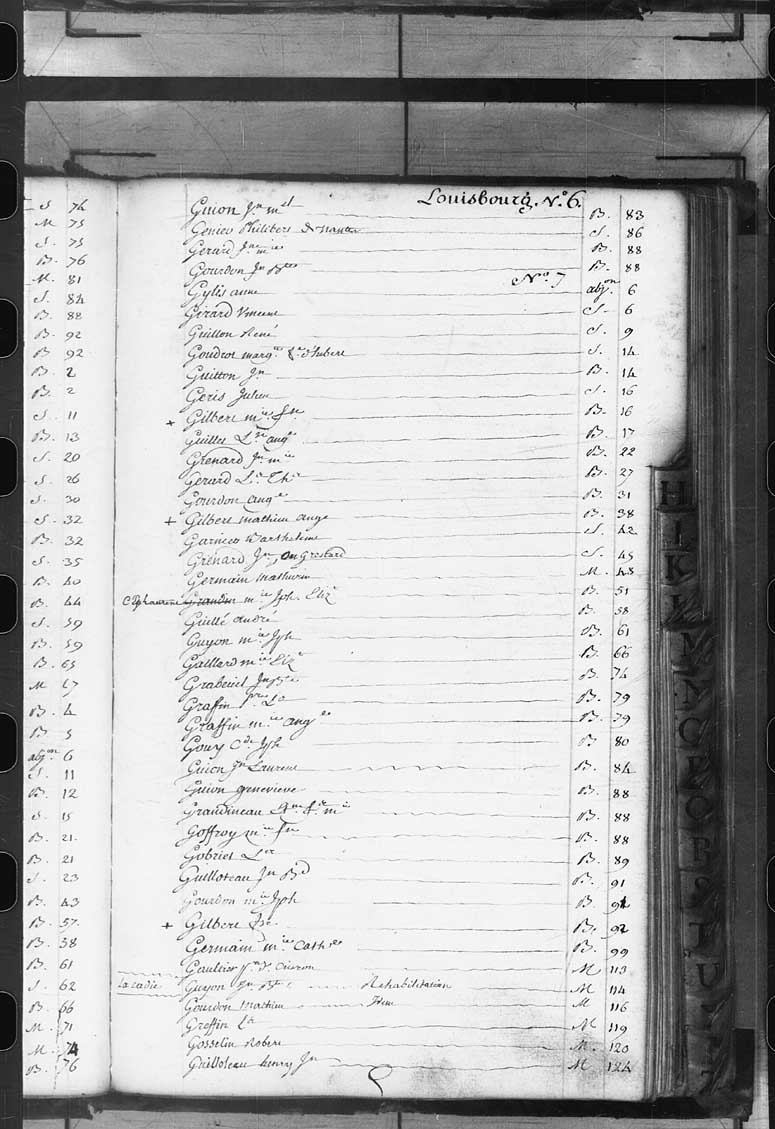 S. 74
M 75
S. 75
B. 76
M. 81
S. 84
B. 88
B. 92
B. 92
B. 2
B. 2
S. 11
B. 13
S. 20
S. 26
S. 30
S. 32
B. 32
S. 35
B. 40
B. 44
S. 59
B. 59
B. 65
M 67
B. 4
B. 5
abjon 6
S. 11
B. 12
S. 15
B. 21.
B. 21
S. 23
B. 43
B. 57.
B. 58
B. 61
S. 62
B. 66
M. 71
M. 74
B. 76
Louisbourg. No. 6.
Guion Jn mel B. 83
Philibert S. 86
Gerard Jne mie B. 88
Gourdon Jn Bte B. 88
No. 7
Gylis anne abjon. 6
Girard Vincent S. 6
Guillon René S. 9
Goudrot margte fe d'hubert S. 14
Guitton Jn B. 14
Geris Julien S. 16
+ Gilbert mie B. 16
Guillet ange B. 17
Grenard Jn mie B. 22
Gerard Le Thse B. 27
Gourdon auge B. 31
+ Gilbert mathieu ange B. 38
Garnier Barthelemi S. 42
Grenard Jn, ou S. 45
Germain Mathurin M. 48
mie Jph. Eliz B. 51
Guillé andré B. 58
Guyon mie Jph B. 61
Gaillard mie Elize B. 66
Jn Bte B. 74
Graffin Le B. 79
Graffin mie ange B. 79
Goury Cde Jph B 80
Guion Jn Laurent B. 84
Guion genevieve B. 88
Grandineau mie B. 88
Goffroy mie B. 88
Gobriet B. 89
Guilloteau Jn Bd B. 91
Gourdon mie Jph B. 91
+ Gilbert B. 92
Germain mie Cathne B. 99
Gaultier M 113
La cadie Guyon Jn Bte Rehabilitation M 114
Gourdon mathieu Item M 116
Greffin M 119
Gosselin Robert M. 120
Guilloteau henry Jn M 124
H
I
K
L
M
N
O
P
Q
R
S
T
U